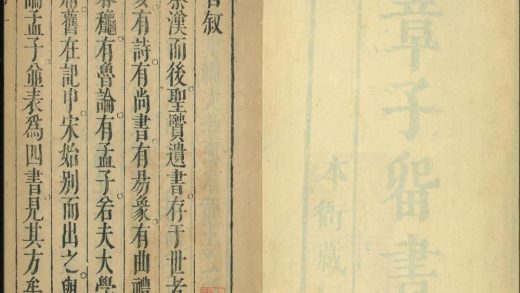 章子留書
本衙藏
叙
漢而後聖賢遺書存于世者
有詩有尚書有易象有曲禮
穐有魯論有孟子若夫大學
庸舊在記中宋始別而出之與
論孟子並表為四書見其方